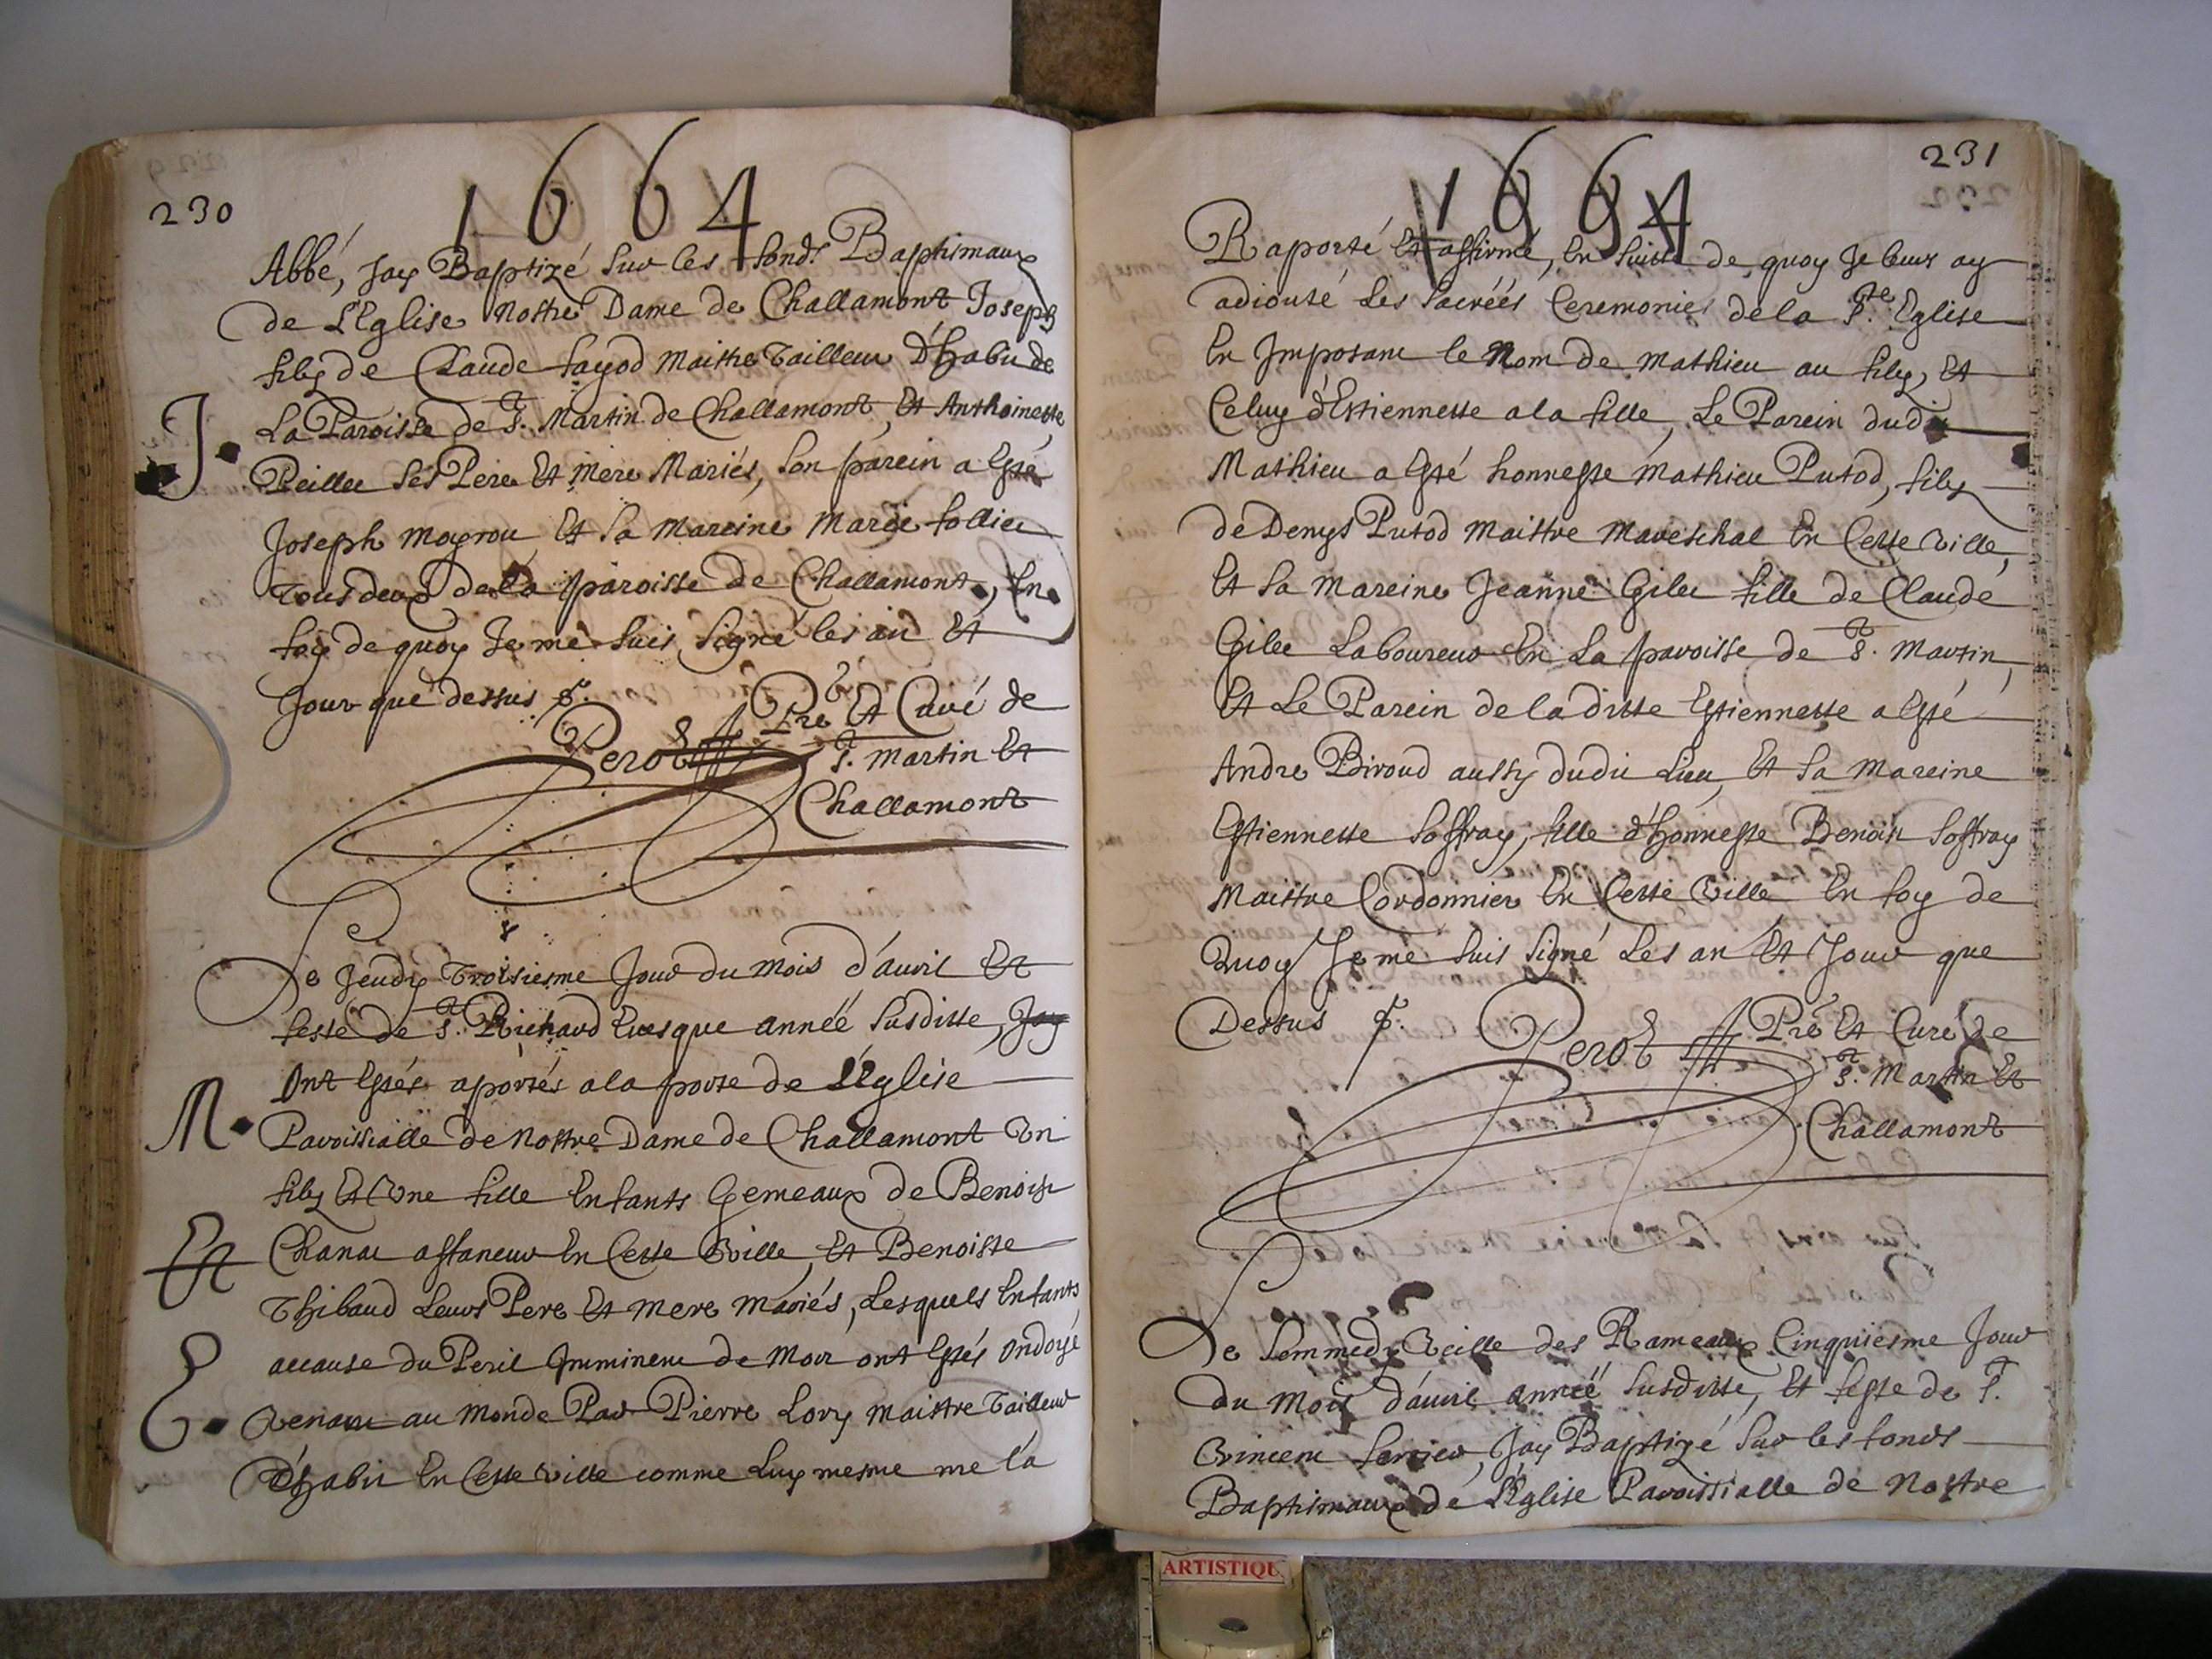 230
1664
Abbé, Jay Baptizé Sur les fonds Baptismaux
de L'Eglise Nostre Dame de Challamont Joseph
filz de Claude fayod Maistre Tailleur D'habit de
La Paroisse de St. Martin de Challamont, Et Anthoinette
J. Peillet Ses Pere Et Mere Mariés, Son parein a Esté
Joseph Et Sa Mareine Marie follier
Tous deux de la paroisse de Challamont, En
foy de quoy Je me Suis Signé les an Et
Jour que dessus
Perot Pre Et Curé de
St. Martin Et
Challamont
Le Jeudy Troisiesme Jour du Mois d'auvril Et
feste de St. Richard Euesque année Susditte, Jay
Ont Estés aportés a la porte de L'Eglise
M. Paroissialle de Nostre Dame de Challamont Un
filz Et Une fille Enfants Gemeaux de Benoist
Et Chanat affaneur En Cette Ville, Et Benoiste
Thibaud Leurs Pere Et Mere Mariés, Lesquels Enfants
E. accause du Peril Imminent de Mort ont Estés Ondoyé
Venant au Monde Par Pierre Lory Maistre Tailleur
d'habit En Cette Ville comme Luy mesme me l'a
231
1664
Raporté Et affirmé, En Suitte de quoy Je leurs ay
adiouté Les Sacréés Ceremonies de la Ste. Eglise
En Imposant le Nom de Mathieu au filz, Et
Celuy d'Estiennette a la fille, Le Parein dudit
Mathieu a Esté honneste Mathieu Putod, filz
de Denys Putod Maistre Mareschal En Cette Ville,
Et Sa Mareine Jeanne Gilet fille de Claude
Gilet Laboureur En La paroisse de St. Martin,
Et Le Parein de la ditte Estiennette a Esté
Andre Piroud aussy dudit Lieu, Et Sa Mareine
Estiennette Soffray, fille d'honneste Benoist Soffray
Maistre Cordonnier En Cette Ville En foy de
Quoy Je me Suis Signé Les an Et Jour que
Dessus
Perot Pre Et Curé de
St. Martin Et
Challamont
Le Sammedy Veille des Rameaux Cinquiesme Jour
du Mois d'auvril année Susditte, Et feste de St.
Vincent Ferrier, Jay Baptizé Sur les fonds
Baptismaux de L'Eglise Paroissialle de Nostre
ARTISTIQU